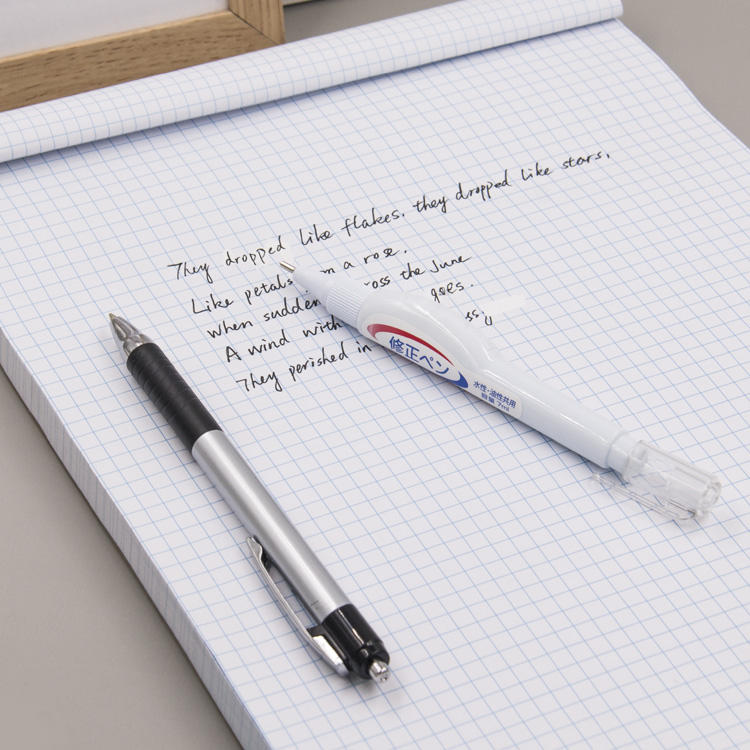 They dropped like flakes. they dropped like stars,
Like petals a rose.
when sudden the June
A wind with goes.
They perished in
修正ペン
水性・油性共用
容量 7ml